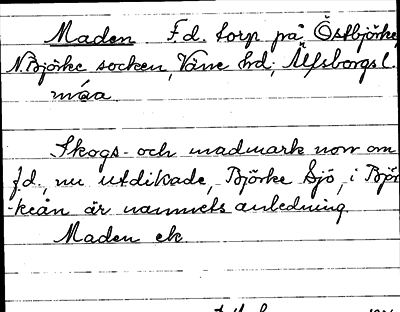 Maden F.d. torp på Östbjörke,
N. Björke socken, Väne hd; Älfsborgs l.
måa.
Skogs- och madmark norr om
f.d., nu utdikade, Björke Sjö, i Björ-
-keån är namnets anledning.
Maden ek.